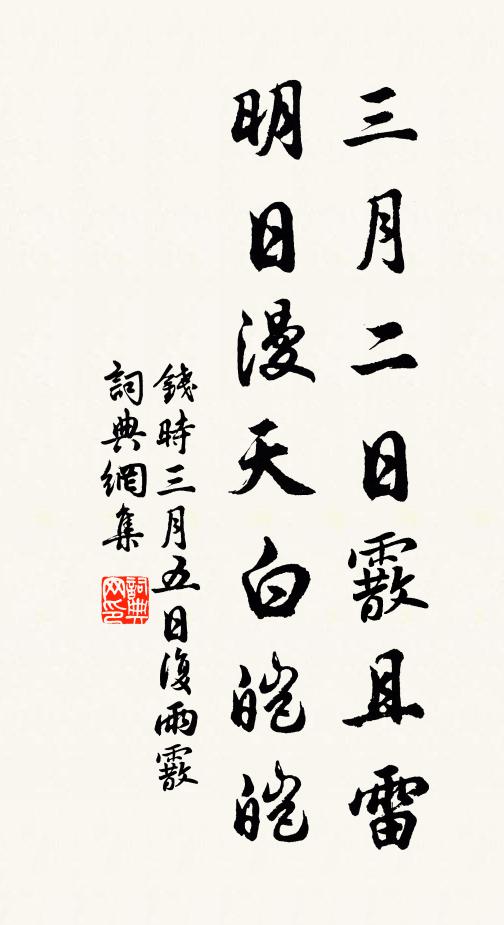 三月二日霰且雷
明日漫天白皚皚
錢時三月五日復雨霰
詞典網集
詞典網印